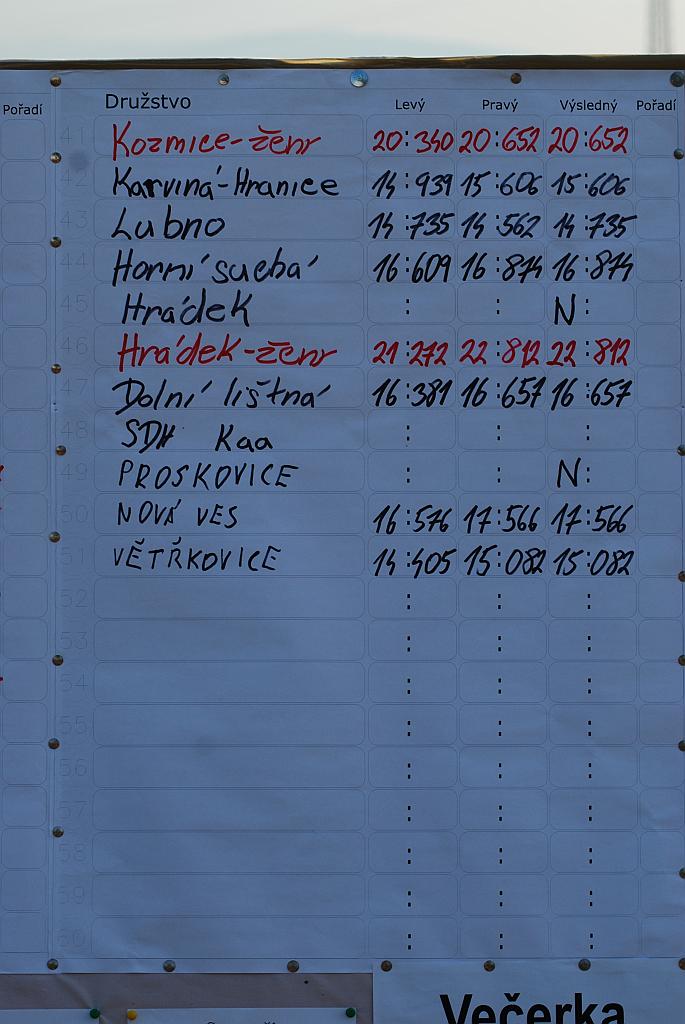 Pořadí Družstvo Levý Pravý Výsledný Pořadí
41 Kozmice-ženy 20:340 20:652 20:652
42 Karviná-Hranice 14:939 15:606 15:606
43 Lubno 14:735 14:562 14:735
44 Horní suchá 16:609 16:874 16:874
45 Hrádek : : N:
46 Hrádek-ženy 21:272 22:812 22:812
47 Dolní lištná 16:381 16:657 16:657
48 SDH Kaa : : :
49 PROSKOVICE : : N:
50 NOVÁ VES 16:576 17:566 17:566
51 VĚTŘKOVICE 14:405 15:082 15:082
52 : : :
53 : : :
54 : : :
55 : : :
56 : : :
57 : : :
58 : : :
59 : : :
60 : : :
Večerka